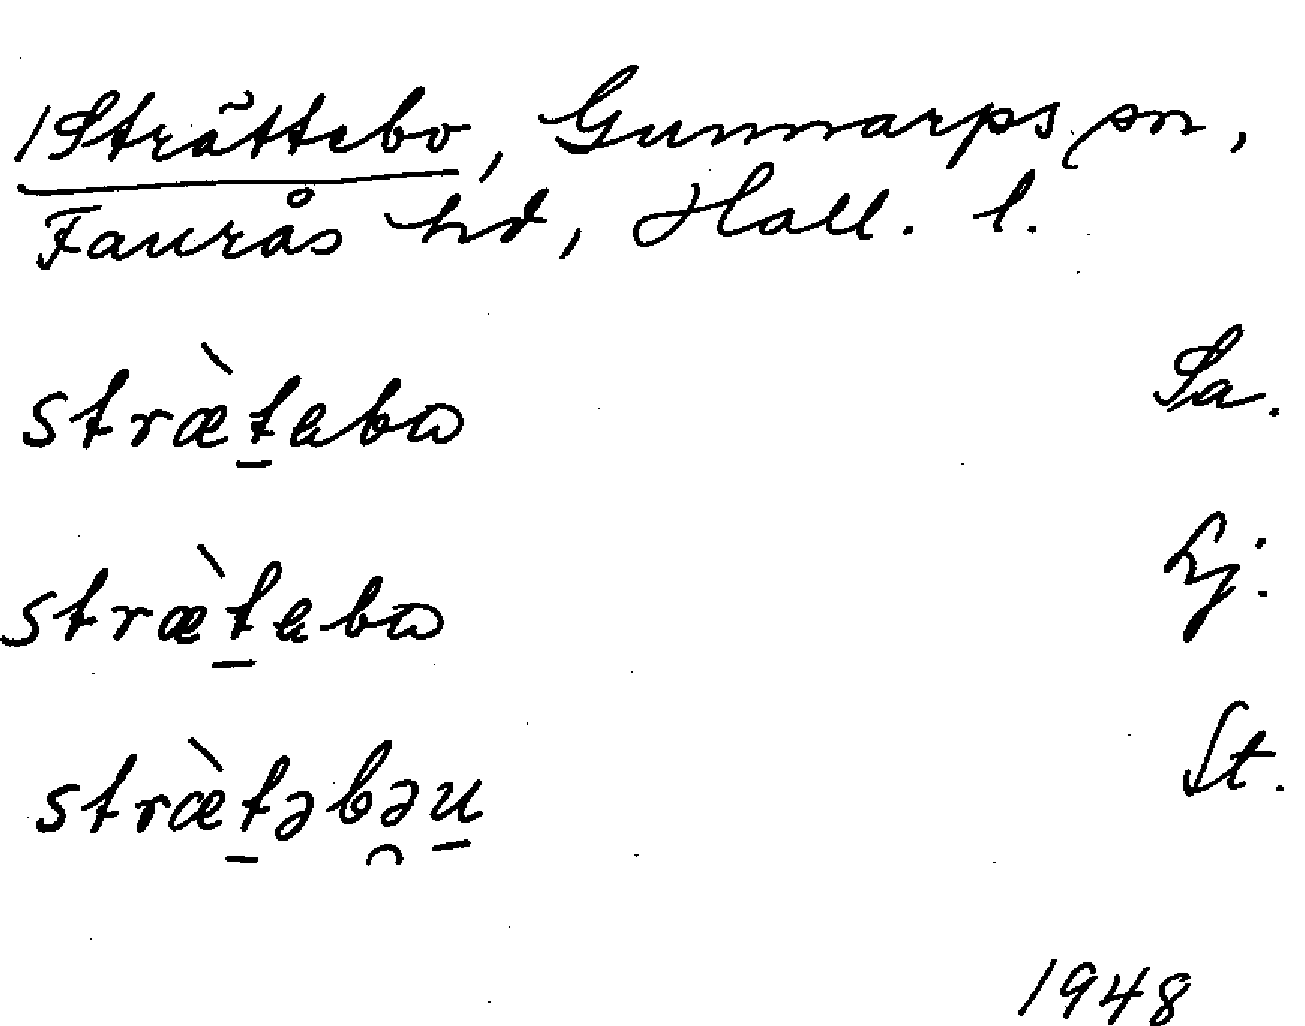 /Strättebo, Gunnarps sn,
Faurås hd, Hall. l.
stræ̀t̠ebɷ Sa.
stræ̀t̠ebɷ Lj.
stræ̀t̠əbə̯u̠ St.
1948